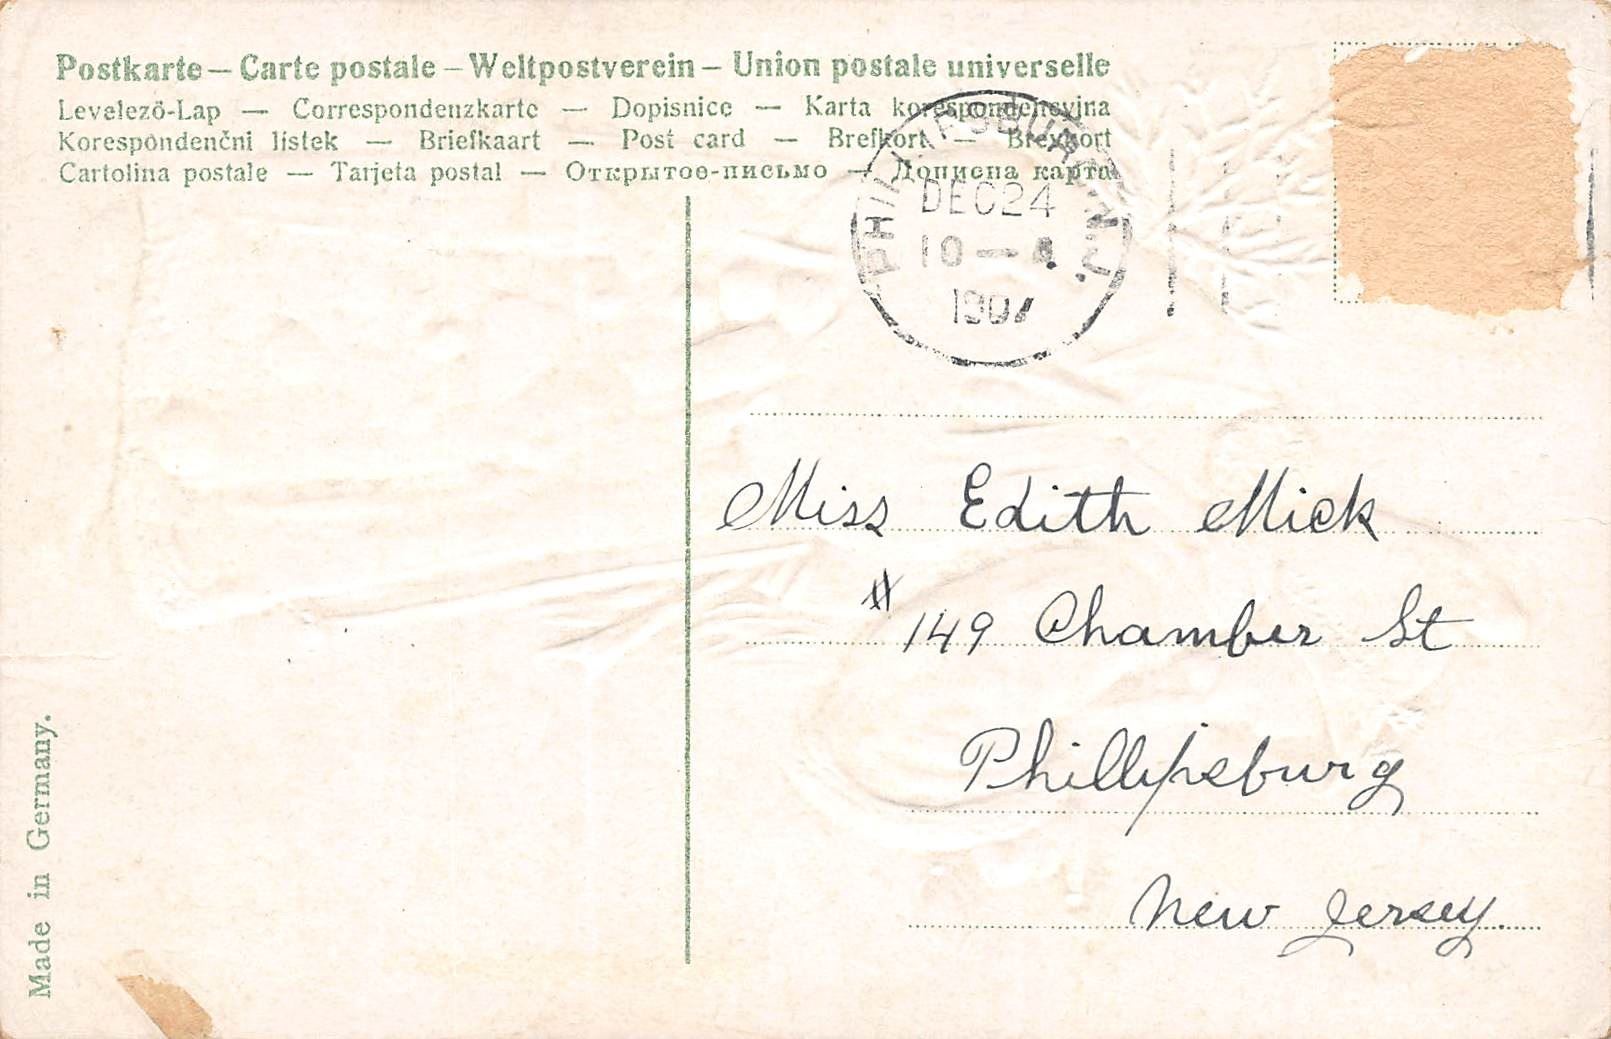 Postkarte – Carte postale – Weltpostverein – Union postale universelle
Levelezö-Lap — Correspondenzkarte — Dopisnice — Karta korespondencyjna
Korespòndenčni listek — Briefkaart — Post card — Brefkort — Brevkort
Cartolina postale — Tarjeta postal — Открытое-письмо — Дописна карта
PHILLIPSBURG, N.J.
DEC 24
10 — A
1907
Miss Edith Mick
# 149 Chamber St
Phillipsburg
New Jersey.
Made in Germany.